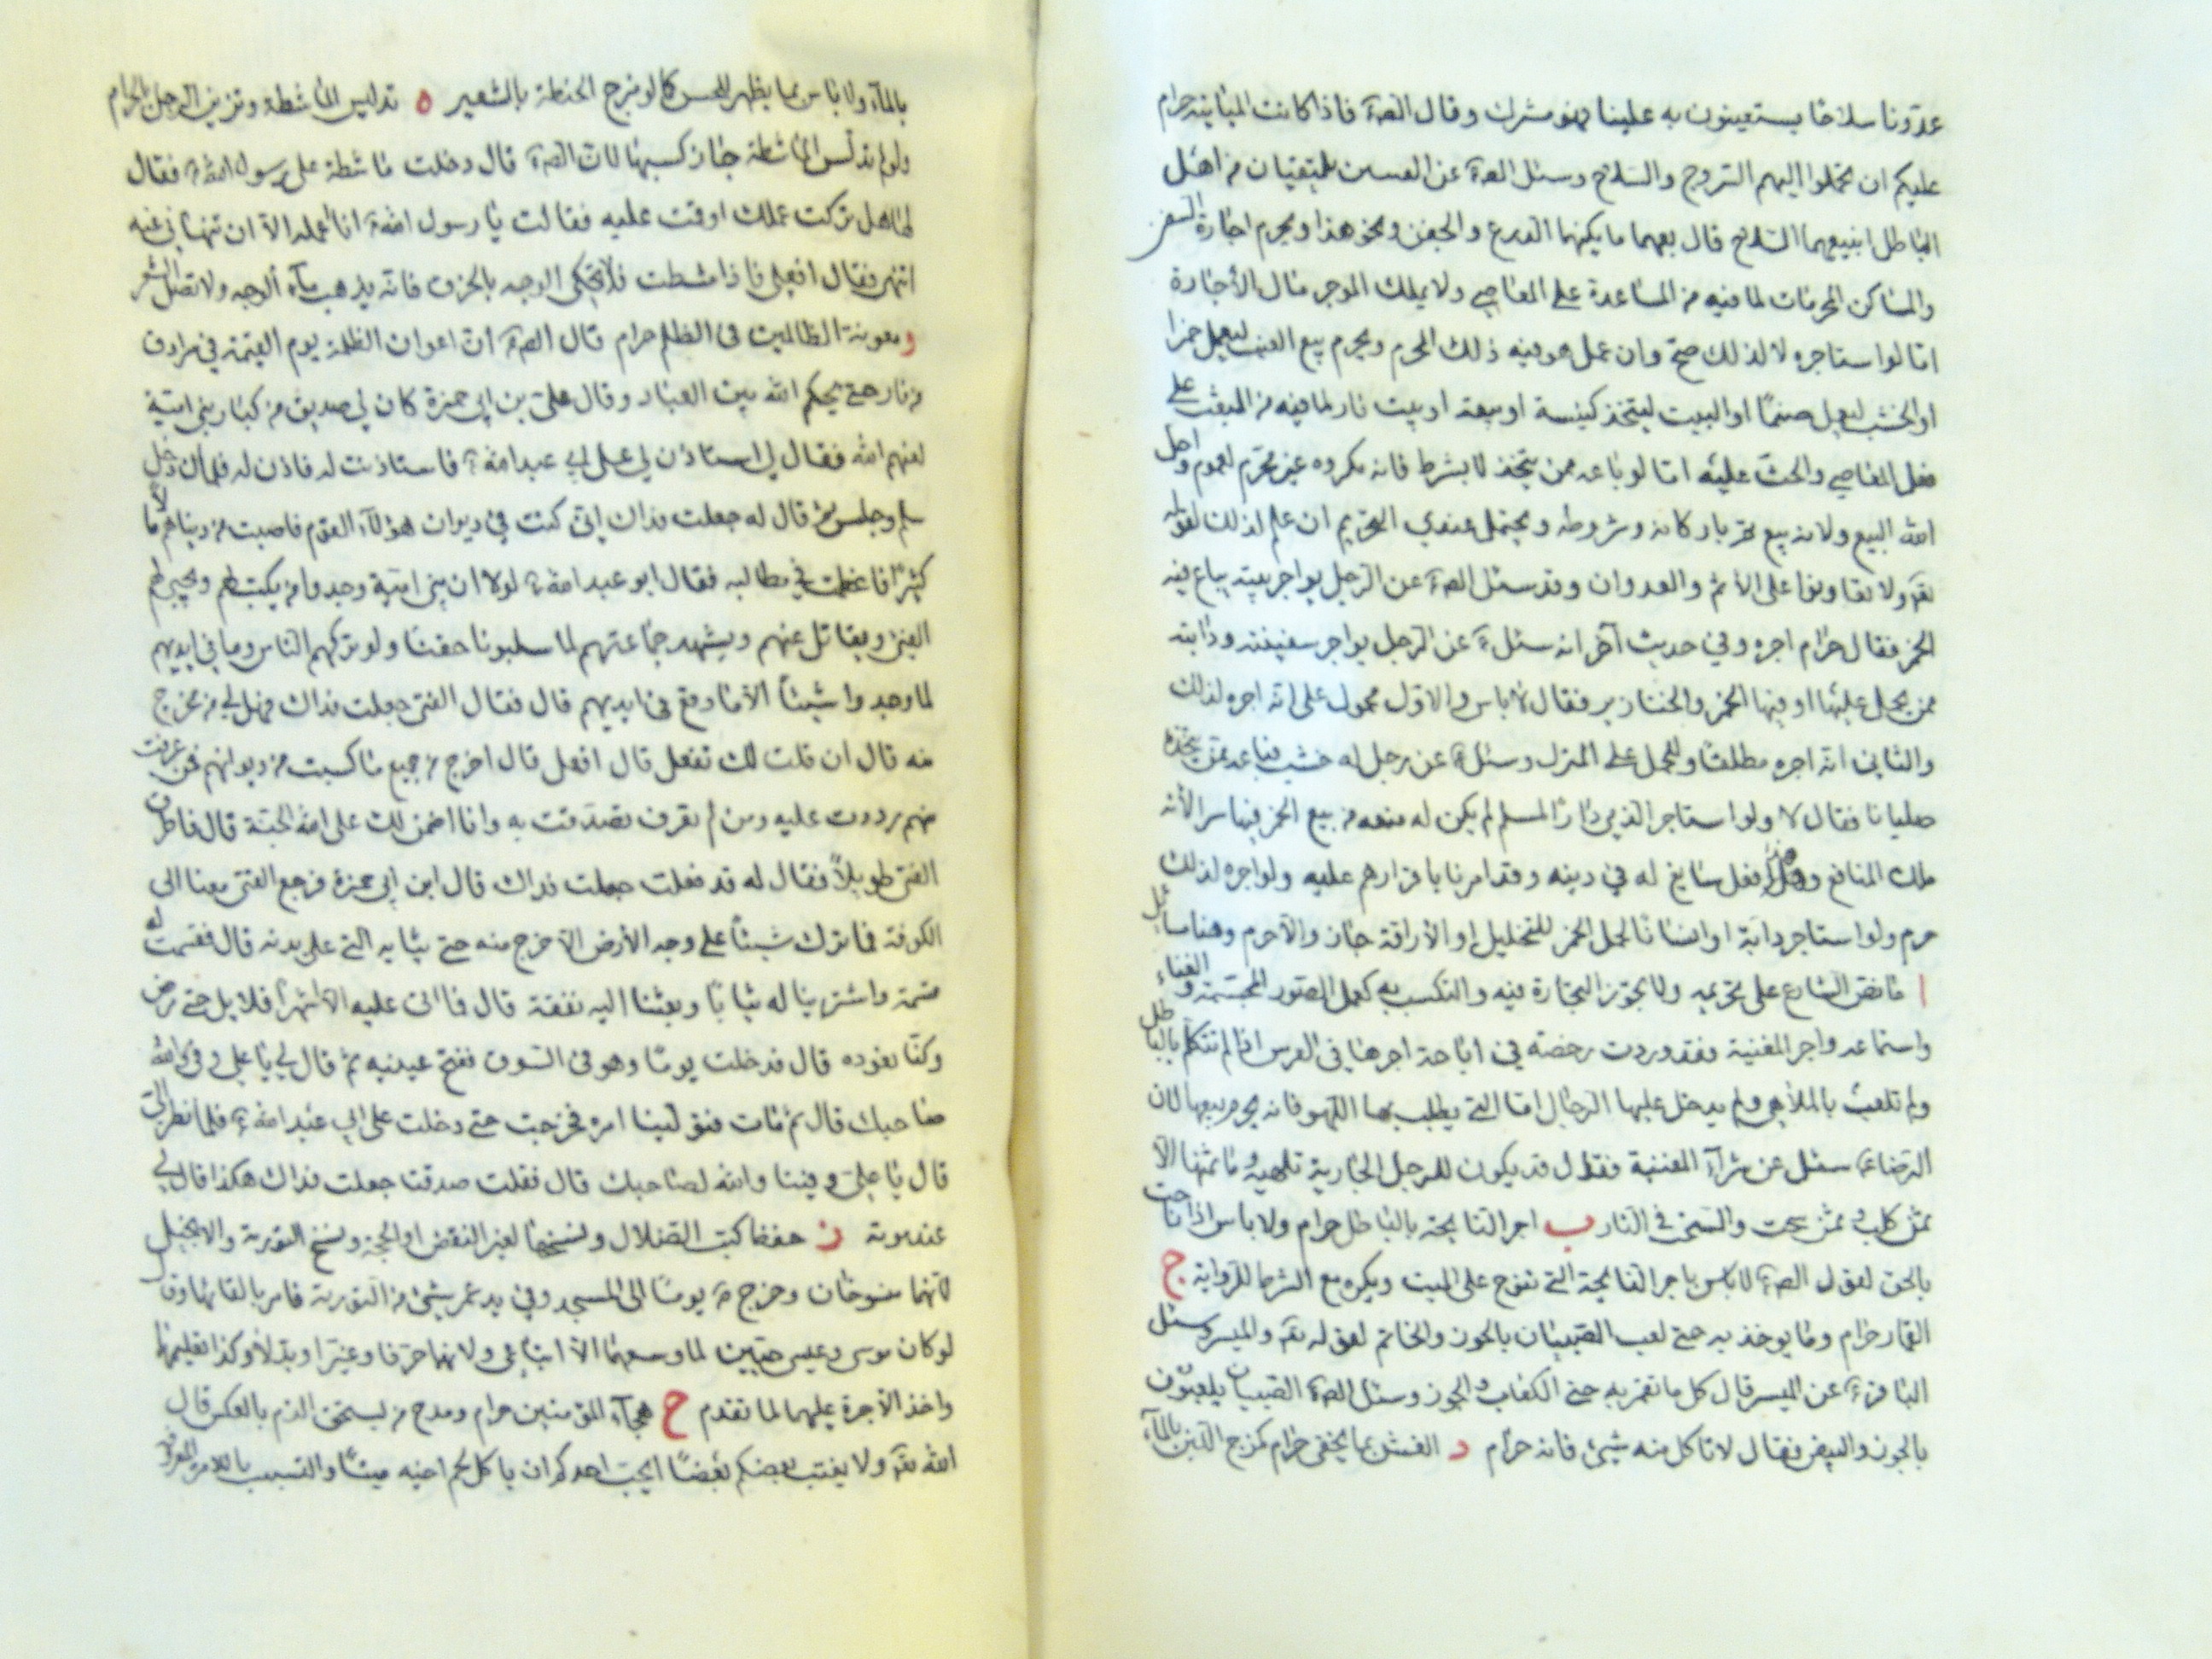 عدونا سلاحا يستعينون به علينا فهو مشرك وقال الصه فاذا كانت المباينه حرام
عليكم ان تحملوا اليهم السروج والسلاح وسئل الصه عن الفسين يلتقيان من اهل
الباطل ابنيعهما السلاح قال بعهما ما يكنهما الدرع والخفين ونحو هذا ويحرم اجارة السفن
والمساكن للمحرمات لما فيه من المساعدة على المعاصي ولا يملك الموجر مال الأجارة
اما لو استاجره لا لذلك صح وان عمل هو فيه ذلك المحرم ويحرم بيع العنب ليعمل خمرا
او الخشب ليعمل صنما او البيت ليتخذ كنيسة او بيعة او بيت نار لما فيه من البعث على
فعل المعاصي والحث عليه اما لو باعه ممن يتخذ لا بشرط فانه مكروه غير محرم لعموم واحل
الله البيع ولانه بيع تم باركانه وشروطه ويحتمل عندي التحريم ان علم لذلك لقوله
تعه ولا تعاونوا على الأثم والعدوان وقد سئل الصه عن الرجل يواجر بيته يباع فيه
الخمر فقال حرام اجره وفي حديث آخر انه سئل ع عن الرجل يواجر سفينته ودابته
ممن يحمل عليها او فيها الخمر والخنازير فقال لا باس والاول محمول على انه اجره لذلك
والثاني انه اجره مطلقا وللحمل على المنزل وسئل ع عن رجل له خشب فباعه ممن يتخذه
صلبانا فقال لا ولو استاجر الذمي دارا لمسلم لم يكن له منعه من بيع الخمر فيها سرا لأنه
ملك المنافع وهذا فعل سايغ له في دينه وقد امرنا باقرارهم عليه ولو اجره لذلك
حرم ولو استاجر دابة او انسانا لحمل الخمر للتخليل او الأراقة جاز والا حرم وهنا مسائل
ا ما نص الشارع على تحريمه ولا يجوز التجارة فيه والتكسب به كعمل الصور المجسمة والغناء
واستماعه واجر المغنية فقد وردت رخصة في اباحة اجرها في العرس اذا لم تتكلم بالباطل
ولم تلعب بالملاهي ولم يدخل عليها الرجال اما التي يطلب بها اللهو فانه يحرم بيعها لان
الرضا ع سئل عن شرآء المغنية فقال قد يكون للرجل الجارية تلهيه وما ثمنها الا
ثمن كلب وثمن سحت والسحت في النار ب اجر النايحة بالباطل حرام ولا باس اذا ناحت
بالحق لقول الصه ع لا باس باجر النايحة التي تنوح على الميت ويكره مع الشرط للرواية ج
القمار حرام وما يوخذ به حتى لعب الصبيان بالجوز والخاتم لقوله تعه والميسر وسئل
الباقر ع عن الميسر قال كل ما تقمر به حتى الكعاب والجوز وسئل الصه الصبيان يلعبون
بالجوز والبيض فقال لا تاكل منه شيئ فانه حرام د الغش بما يخفى حرام كمزج اللبن بالمآء
بالمآء ولا باس بما يظهر للحس كما لو مزج الحنطة بالشعير ه تدليس الماشطة وتزيين الرجل بالحرام
ولو لم تدلس الماشطة جاز كسبها لان الصه ع قال دخلت ماشطة على رسول الله ص فقال
لها هل تركت عملك او قت عليه فقالت يا رسول الله ص انا اعمله الا ان تنهاني عنه
انتهى فقال افعلي فاذا مشطت فلا تحكى الوجه بالخزف فانه يذهب بمآء الوجه ولا تصل الشعر
و معونة الظالمين في الظلم حرام قال الصه ع ان اعوان الظلمة يوم القيمة في سرادق
من نار حتى يحكم الله بين العباد وقال علي بن ابي حمزة كان لي صديق من كتاب بني امية
لعنهم الله فقال لي استاذن لي على ابي عبد الله ع فاستاذنت له فاذن له فلما ان دخل
سلم وجلس ثم قال له جعلت فداك اني كنت في ديوان هؤلآء القوم فاصبت من دنياهم مالا
كثيرا فاغمضت في مطالبه فقال ابو عبد الله ع لولا ان بني امية وجدوا من يكتب لهم ويجبي لهم
الفئ ويقاتل عنهم ويشهد جماعتهم لما سلبونا حقنا ولو تركهم الناس وما في ايديهم
لما وجدوا شيئاً الا ما وقع في ايديهم قال فقال الفتى جعلت فداك فهل لي من مخرج
منه قال ان قلت لك تفعل قال افعل قال اخرج من جميع ما كسبت من ديوانهم فمن عرفت
منهم رددت عليه ومن لم تعرف تصدقت به وانا اضمن لك على الله الجنة قال فاطرق
الفتى طويلاً فقال له قد فعلت جعلت فداك قال ابن ابي حمزة فرجع الفتى معنا الى
الكوفة فما ترك شيئاً على وجه الأرض الا خرج منه حتى ثيابه التي على بدنه قال فقسمت له
قسمة واشترينا له ثيابا وبعثنا اليه نفقة قال فما اتى عليه الا اشهراً قلايل حتى مرض
وكنا نعوده قال فدخلت يوما وهو في السوق ففتح عينيه ثم قال لي يا علي وفي والله
صاحبك قال ثم مات فتولينا امره فخرجت حتى دخلت على ابي عبد الله ع فلما نظر الي
قال يا علي وفينا والله لصاحبك قال فقلت صدقت جعلت فداك هكذا قال لي
عند موته ز حفظ كتب الضلال ونسخها لغير النقض او الحجة ونسخ التورية والانجيل
لانهما منسوخان وخرج ص يوما الى المسجد وفي يد عمر شيئ من التورية فامر بالقائها وقال
لو كان موسى وعيسى حيين لما وسعهما الا اتباعي ولانهما حرفا وغيرا وبدلا وكذا تعليمها
واخذ الأجرة عليهما لما تقدم ح هجآء المؤمنين حرام ومدح من يستحق الذم بالعكس قال
الله تعه ولا يغتب بعضكم بعضا ايحب احدكم ان ياكل لحم اخيه ميتا والتسبيب